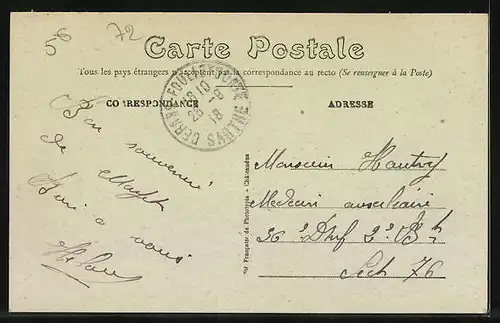 56 72
Carte Postale
Tous les pays étrangers n'acceptent pas la correspondance au recto (Se renseigner à la Poste)
CORRESPONDANCE
ADRESSE
CERANS-FOULLETOURTE SARTHE
18 10
28 -8
18
Bon souvenir
de Mayet
à vous
Monsieur Hautry
Medecin auxiliaire
36e 2e Bn
Sect 76
Française de Phototypie - Châteaudun